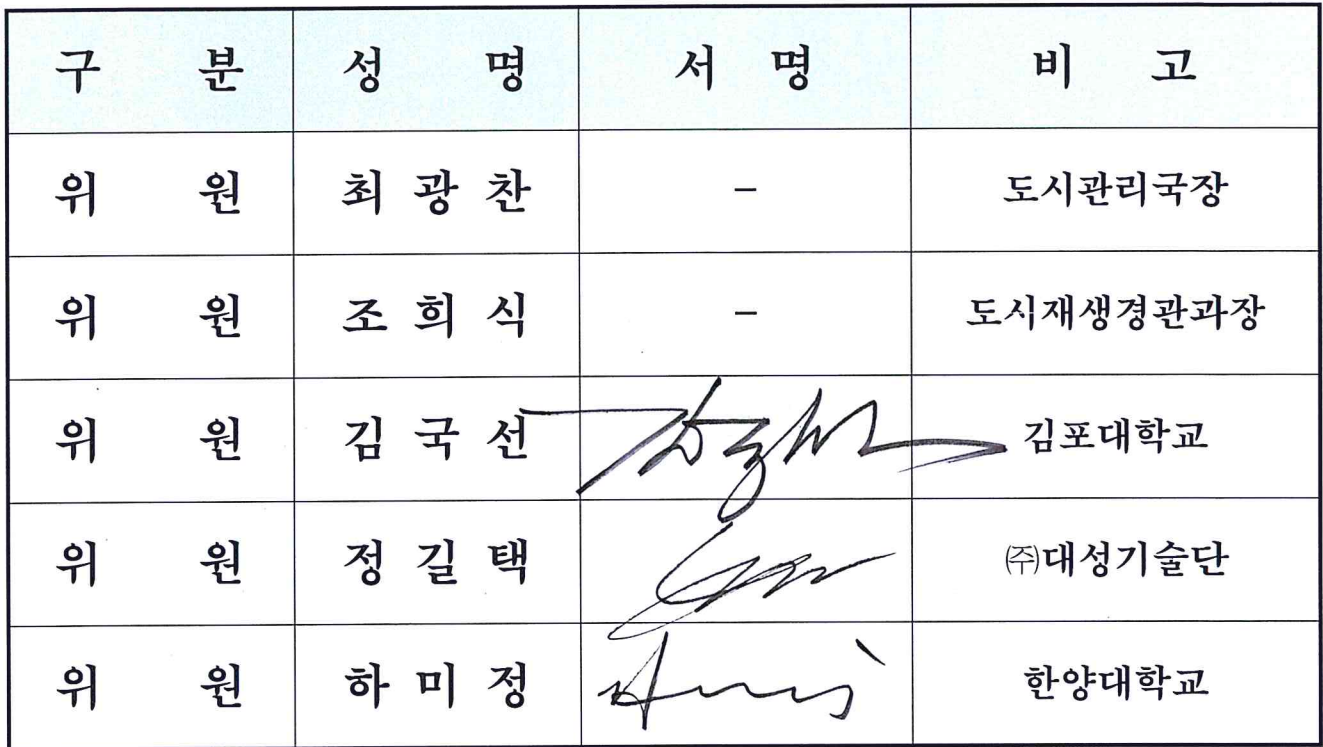 구 분 성 명 서 명 비 고
위 원 최 광 찬 - 도시관리국장
위 원 조 희 식 - 도시재생경관과장
위 원 김 국 선 김포대학교
위 원 정 길 택 ㈜대성기술단
위 원 하 미 정 한양대학교